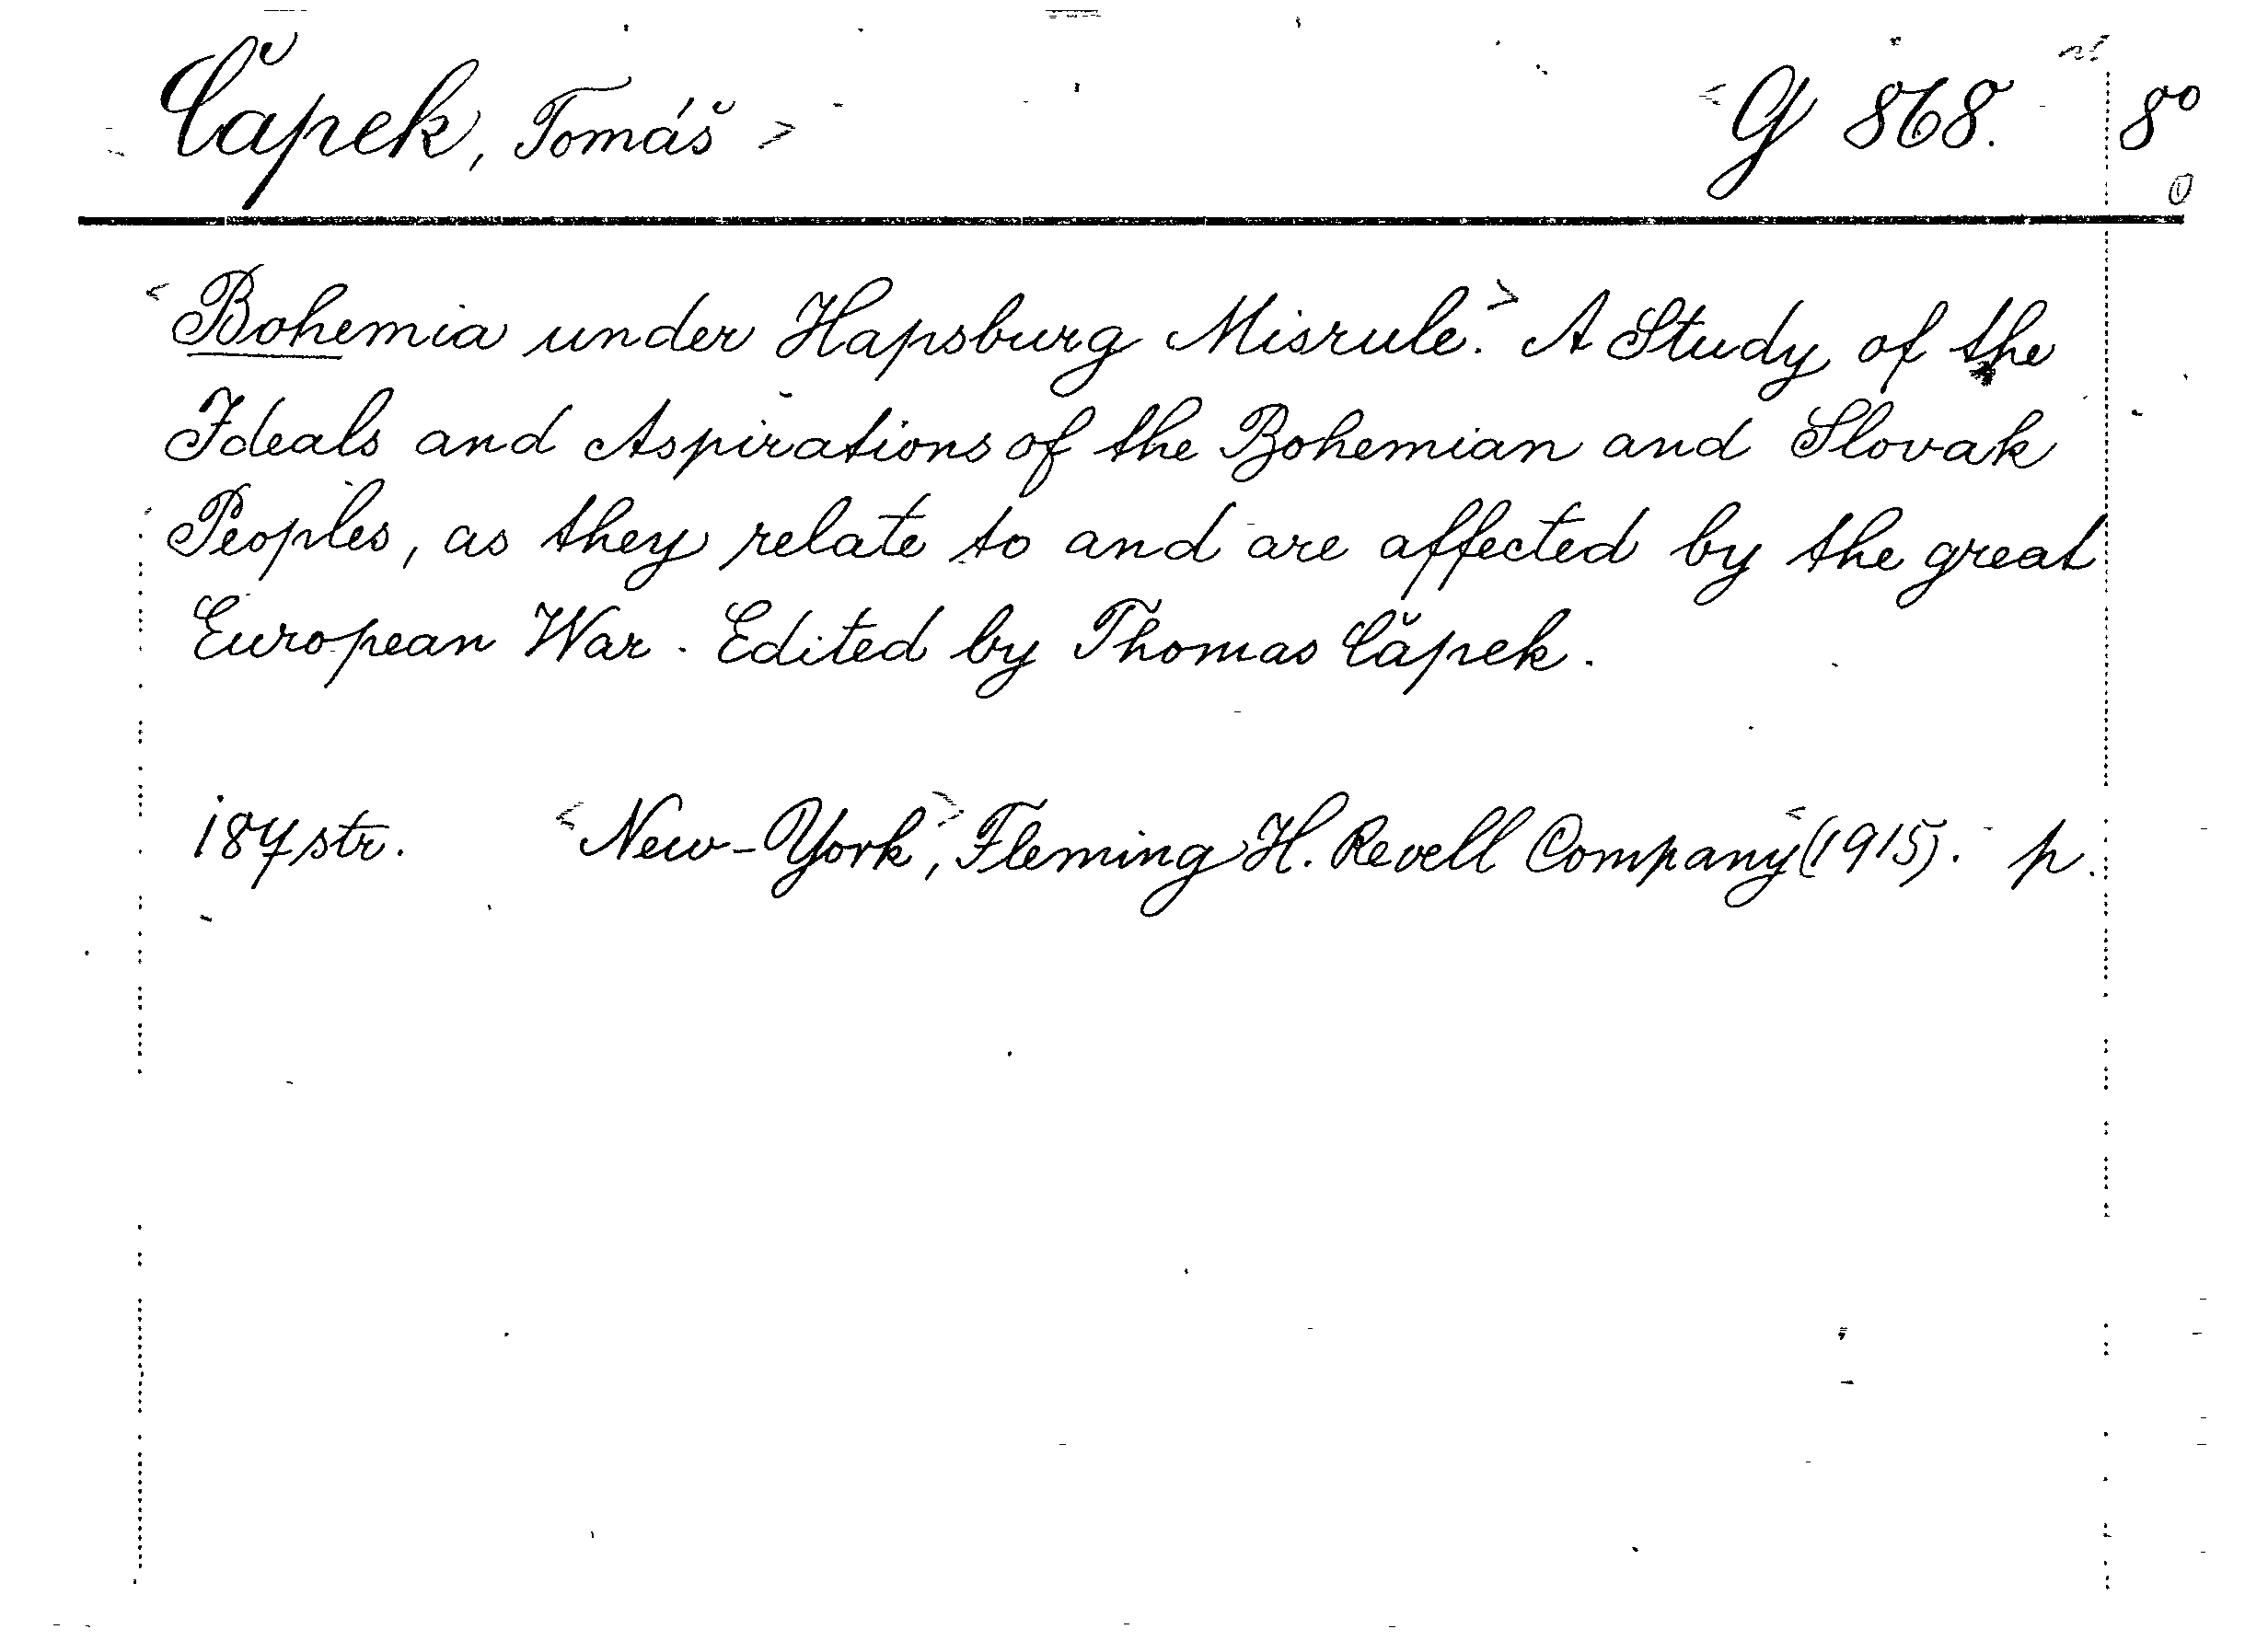 Čapek, Tomáš > < G 868. 8°
< Bohemia under Hapsburg Misrule. > A Study of the
Ideals and Aspirations of the Bohemian and Slovak
Peoples, as they relate to and are affected by the great
European War. Edited by Thomas Čapek.
187 str. < New-York >, Fleming H. Revell Company < (1915). p.